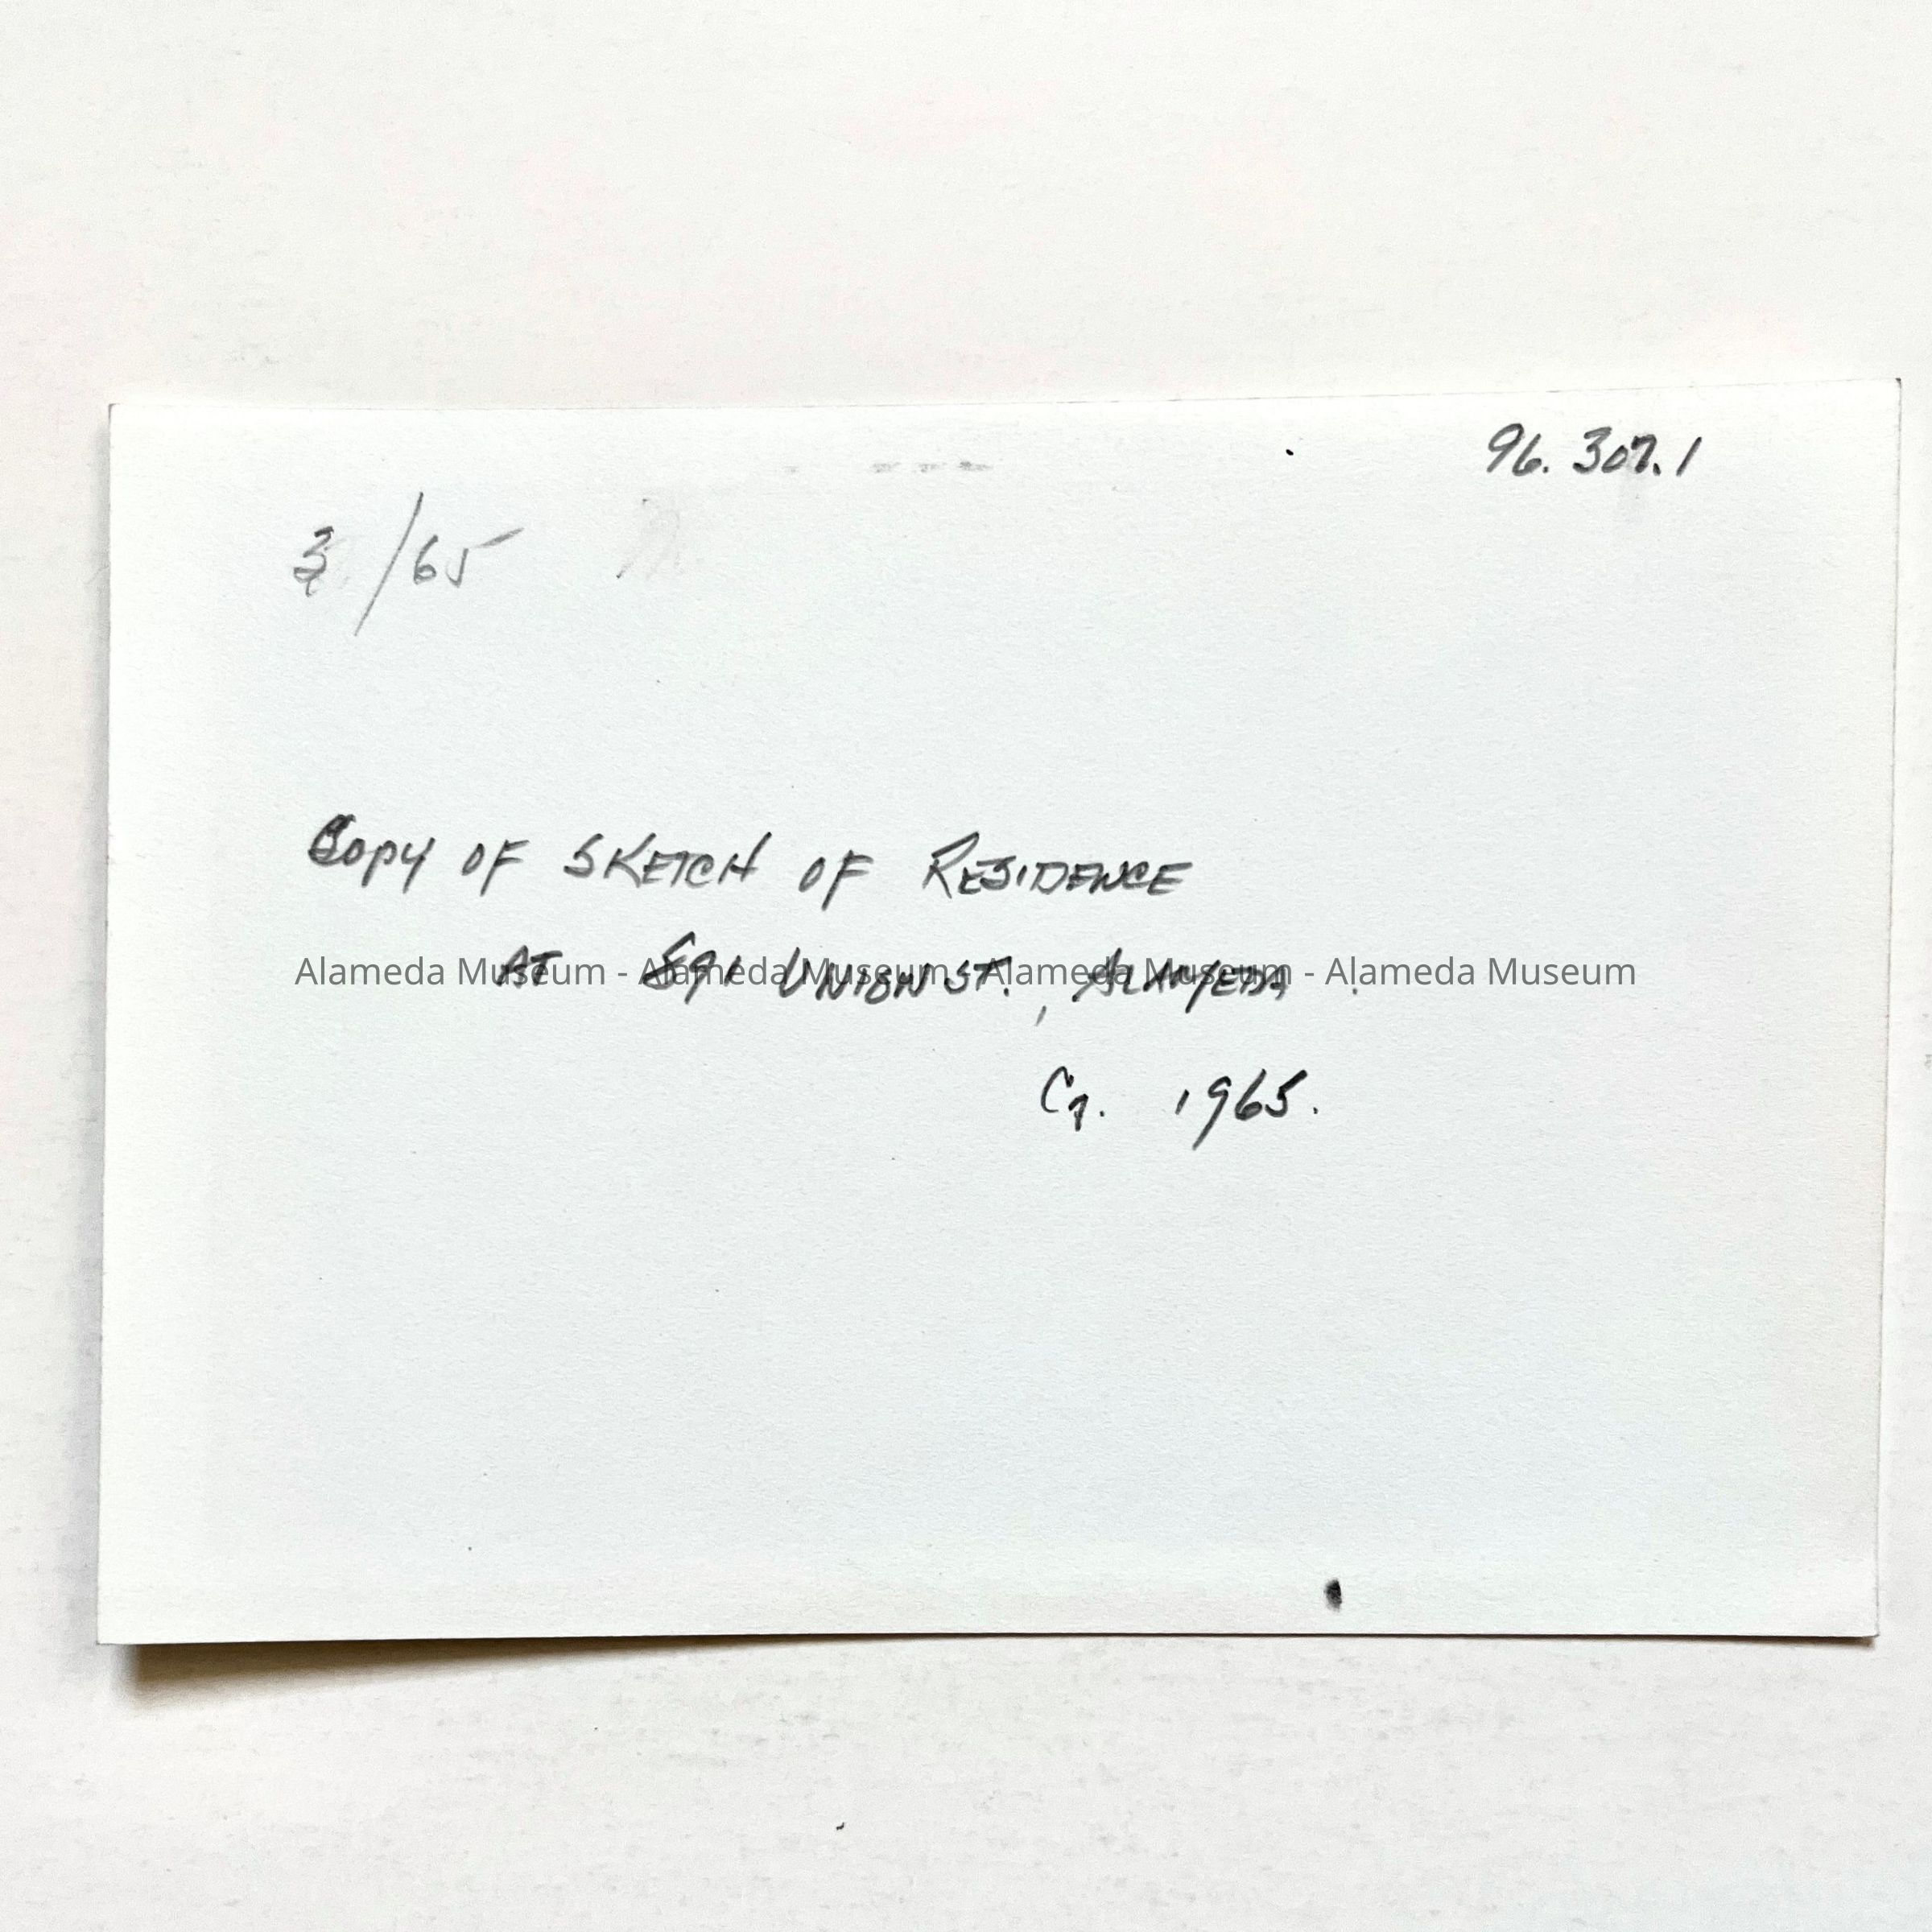 96.307.1
3/65
Copy OF SKETCH OF RESIDENCE
AT 891 UNION ST., ALAMEDA
Alameda Museum - Alameda Museum - Alameda Museum - Alameda Museum
Ca. 1965.